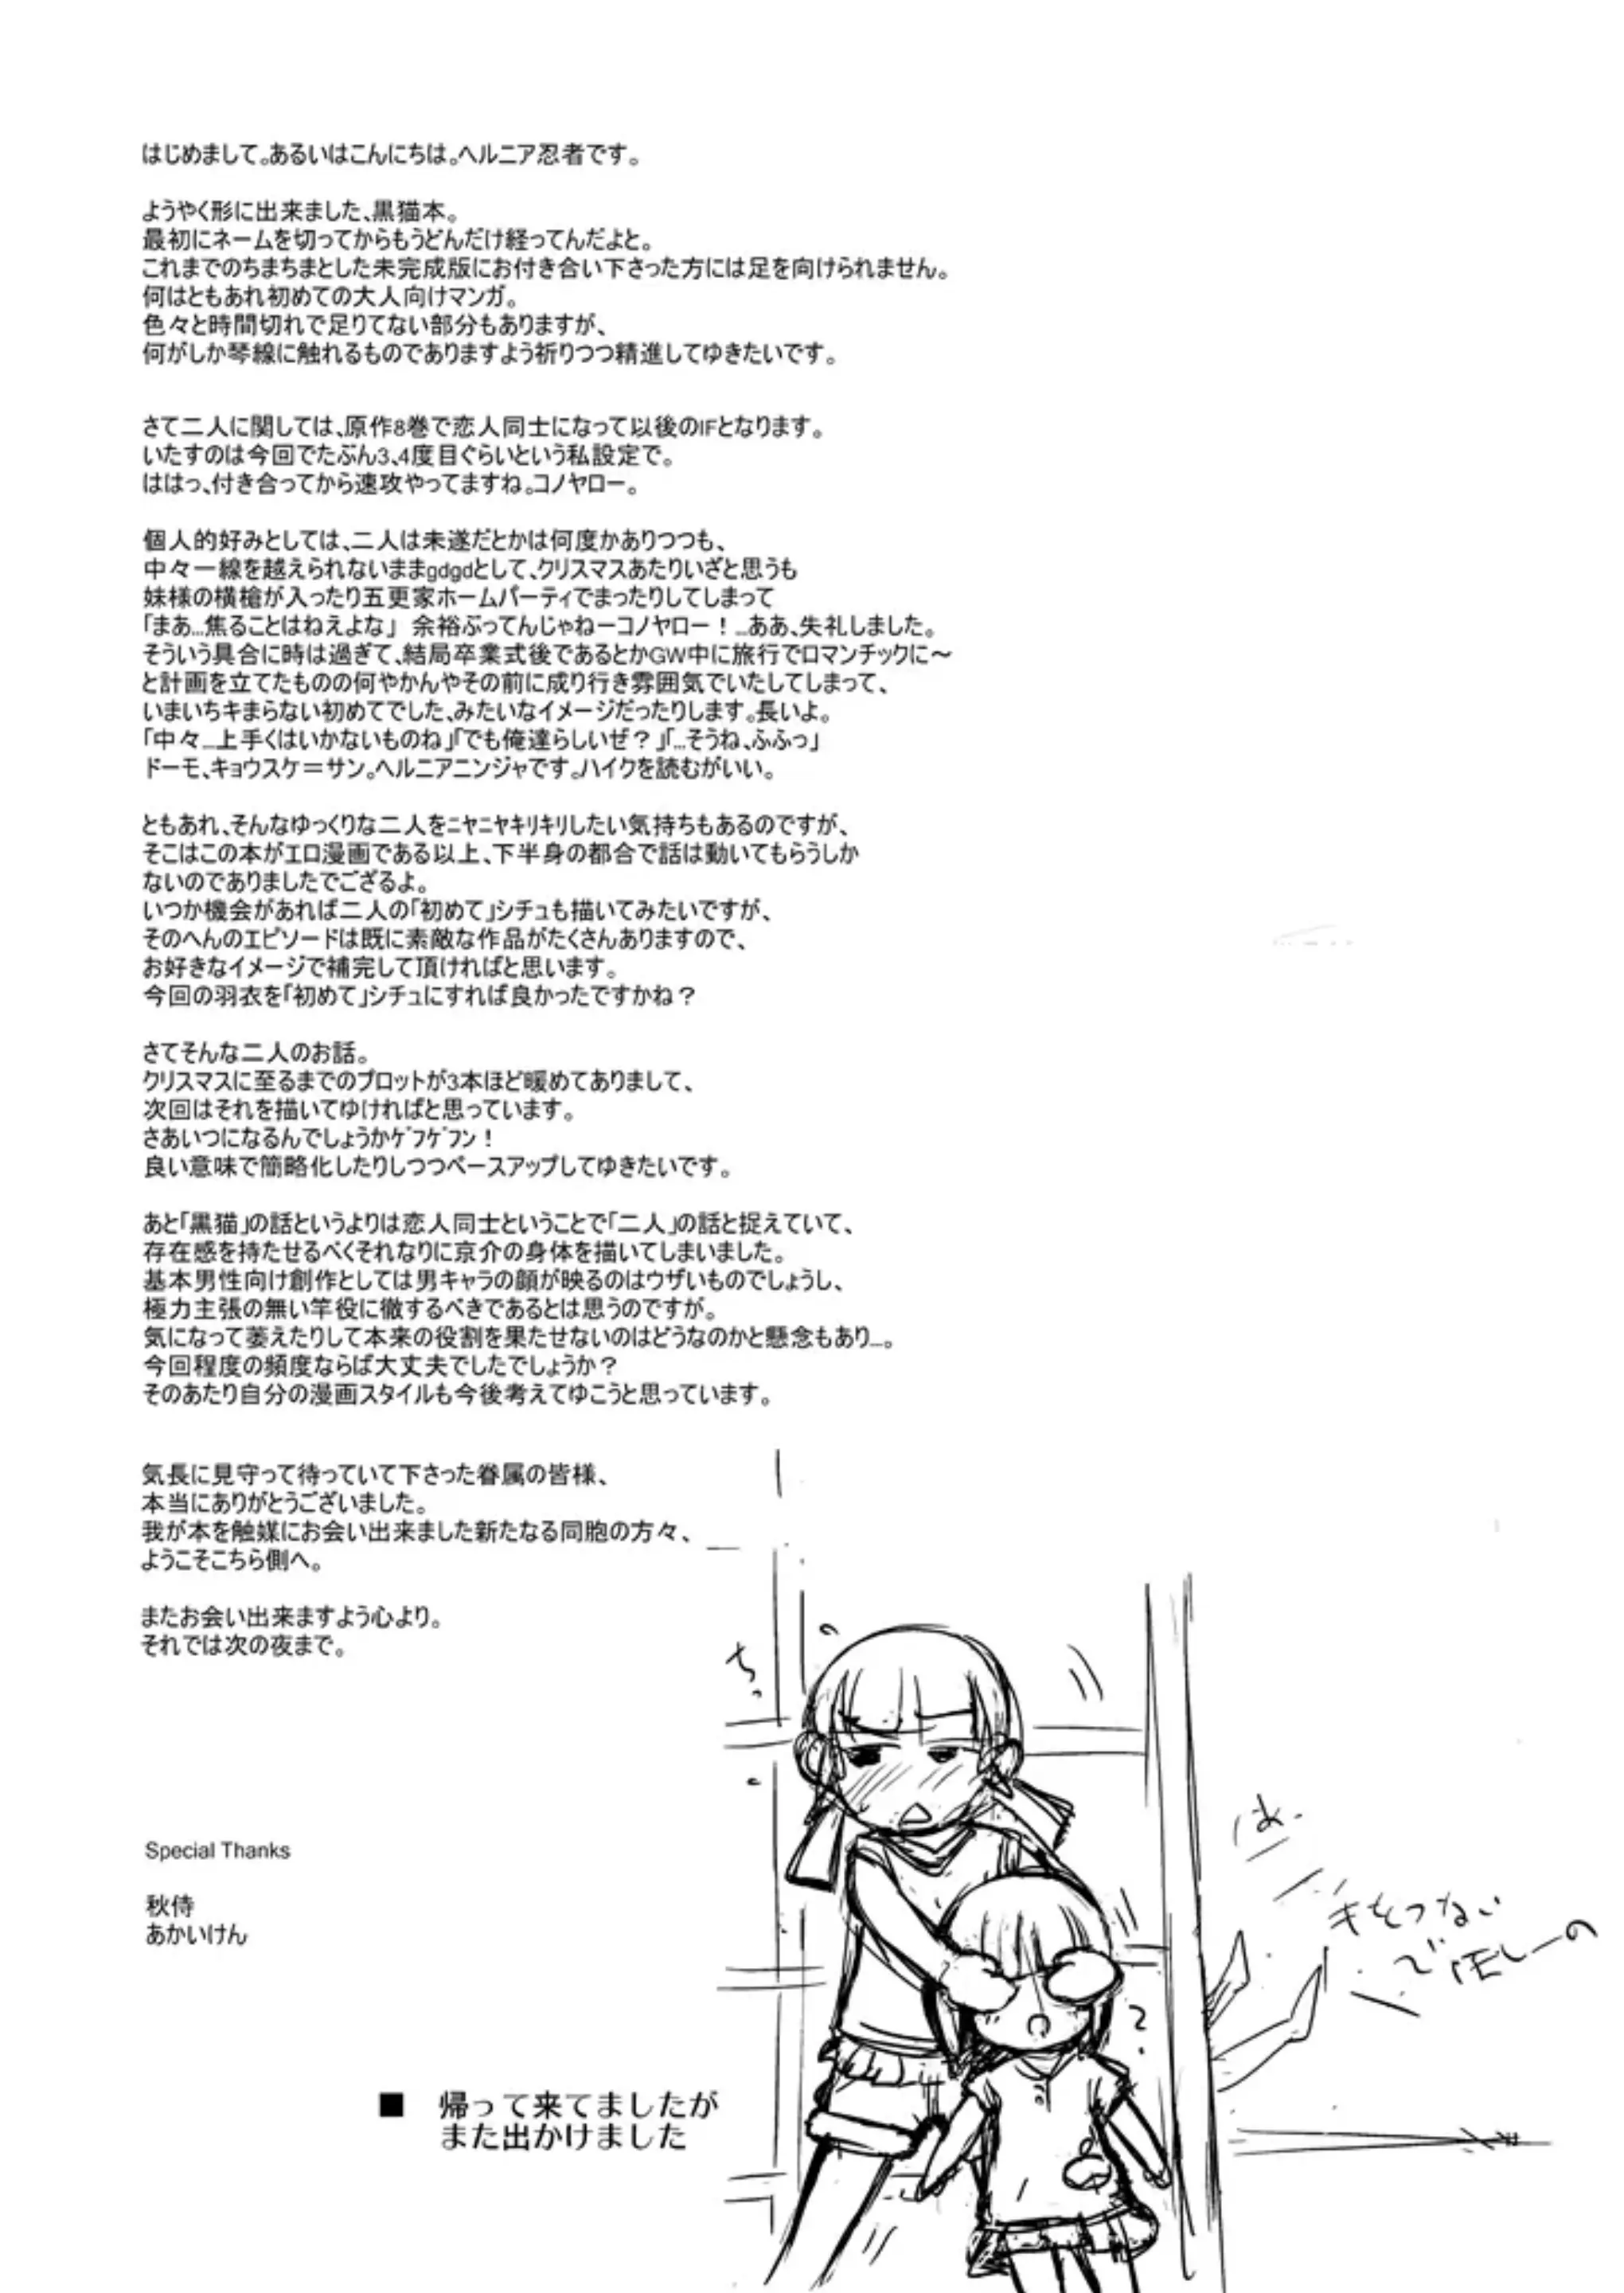 はじめまして。あるいはこんにちは。ヘルニア忍者です。
ようやく形に出来ました、黒猫本。
最初にネームを切ってからもうどんだけ経ってんだよと。
これまでのちまちまとした未完成版にお付き合い下さった方には足を向けられません。
何はともあれ初めての大人向けマンガ。
色々と時間切れで足りてない部分もありますが、
何がしか琴線に触れるものでありますよう祈りつつ精進してゆきたいです。
さて二人に関しては、原作8巻で恋人同士になって以後のIFとなります。
いたすのは今回でたぶん3、4度目ぐらいという私設定で。
ははっ、付き合ってから速攻やってますね。コノヤロー。
個人的好みとしては、二人は未遂だとかは何度かありつつも、
中々一線を越えられないままgdgdとして、クリスマスあたりいざと思うも
妹様の横槍が入ったり五更家ホームパーティでまったりしてしまって
「まあ...焦ることはねえよな」 余裕ぶってんじゃねーコノヤロー！...ああ、失礼しました。
そういう具合に時は過ぎて、結局卒業式後であるとかGW中に旅行でロマンチックに～
と計画を立てたものの何やかんやその前に成り行き雰囲気でいたしてしまって、
いまいちキまらない初めてでした、みたいなイメージだったりします。長いよ。
「中々...上手くはいかないものね」「でも俺達らしいぜ？」「...そうね、ふふっ」
ドーモ、キョウスケ＝サン。ヘルニアニンジャです。ハイクを読むがいい。
ともあれ、そんなゆっくりな二人をﾆﾔﾆﾔｷﾘｷﾘしたい気持ちもあるのですが、
そこはこの本がエロ漫画である以上、下半身の都合で話は動いてもらうしか
ないのでありましたでござるよ。
いつか機会があれば二人の「初めて」シチュも描いてみたいですが、
そのへんのエピソードは既に素敵な作品がたくさんありますので、
お好きなイメージで補完して頂ければと思います。
今回の羽衣を「初めて」シチュにすれば良かったですかね？
さてそんな二人のお話。
クリスマスに至るまでのプロットが3本ほど暖めてありまして、
次回はそれを描いてゆければと思っています。
さあいつになるんでしょうかｹﾞﾌｹﾞﾌﾝ！
良い意味で簡略化したりしつつペースアップしてゆきたいです。
あと「黒猫」の話というよりは恋人同士ということで「二人」の話と捉えていて、
存在感を持たせるべくそれなりに京介の身体を描いてしまいました。
基本男性向け創作としては男キャラの顔が映るのはウザいものでしょうし、
極力主張の無い竿役に徹するべきであるとは思うのですが。
気になって萎えたりして本来の役割を果たせないのはどうなのかと懸念もあり...。
今回程度の頻度ならば大丈夫でしたでしょうか？
そのあたり自分の漫画スタイルも今後考えてゆこうと思っています。
気長に見守って待っていて下さった眷属の皆様、
本当にありがとうございました。
我が本を触媒にお会い出来ました新たなる同胞の方々、
ようこそこちら側へ。
またお会い出来ますよう心より。
それでは次の夜まで。
ち。
?
Special Thanks
秋侍
あかいけん
■ 帰って来てましたが
また出かけました